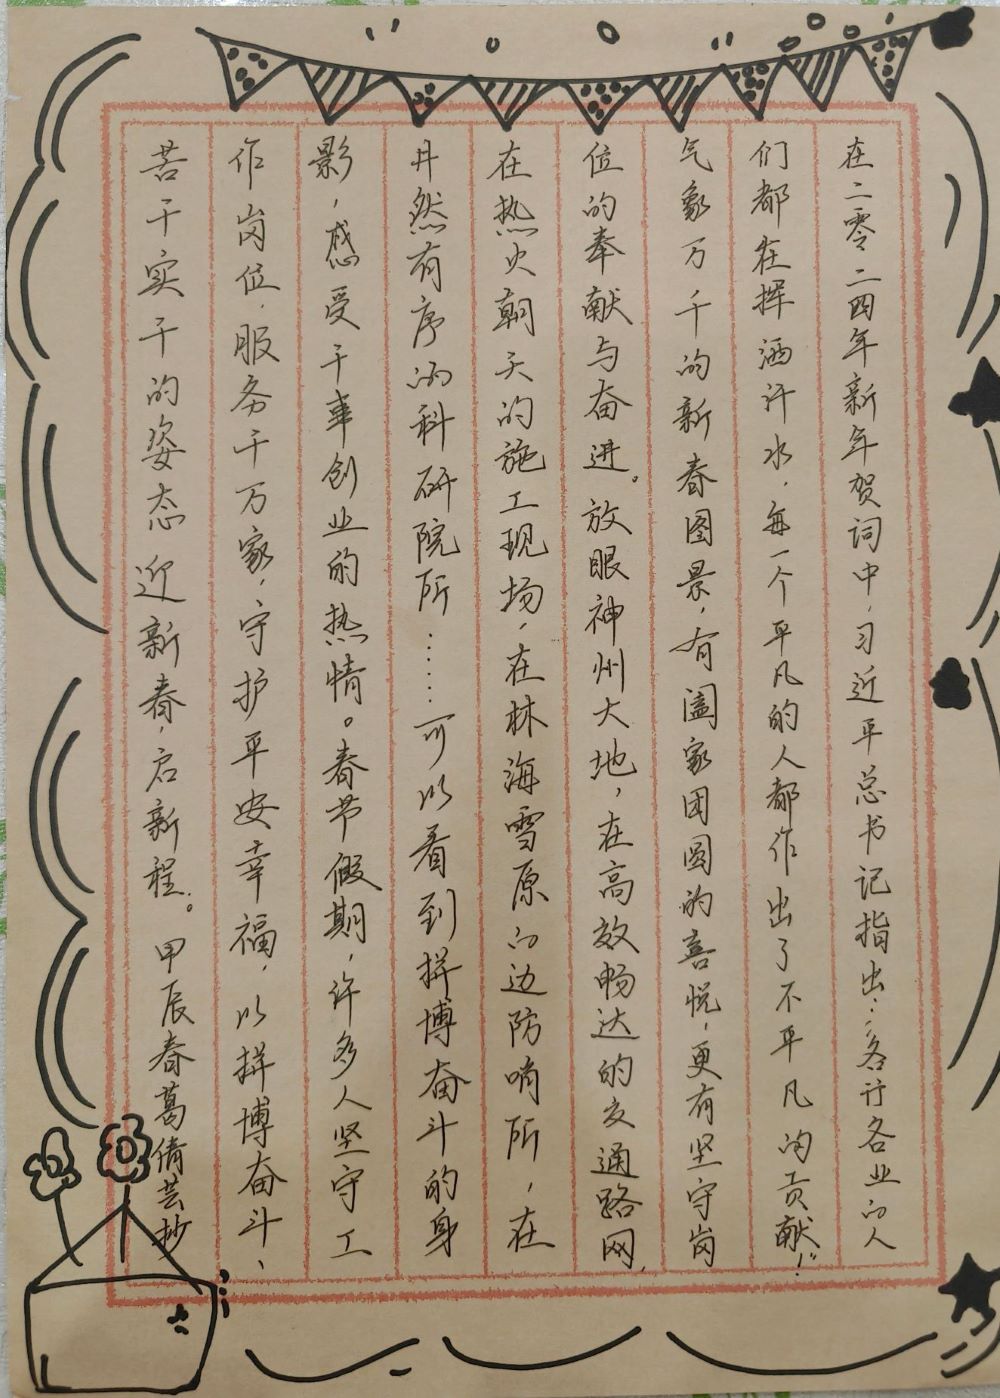 在二零二四年新年贺词中，习近平总书记指出：“各行各业的人
们都在挥洒汗水，每一个平凡的人都作出了不平凡的贡献！”
气象万千的新春图景，有阖家团圆的喜悦，更有坚守岗
位的奉献与奋进。放眼神州大地，在高效畅达的交通路网，
在热火朝天的施工现场，在林海雪原的边防哨所，在
井然有序的科研院所……可以看到拼博奋斗的身
影，感受干事创业的热情。春节假期，许多人坚守工
作岗位，服务千万家，守护平安幸福，以拼博奋斗、
苦干实干的姿态迎新春，启新程。 甲辰春葛倩芸抄